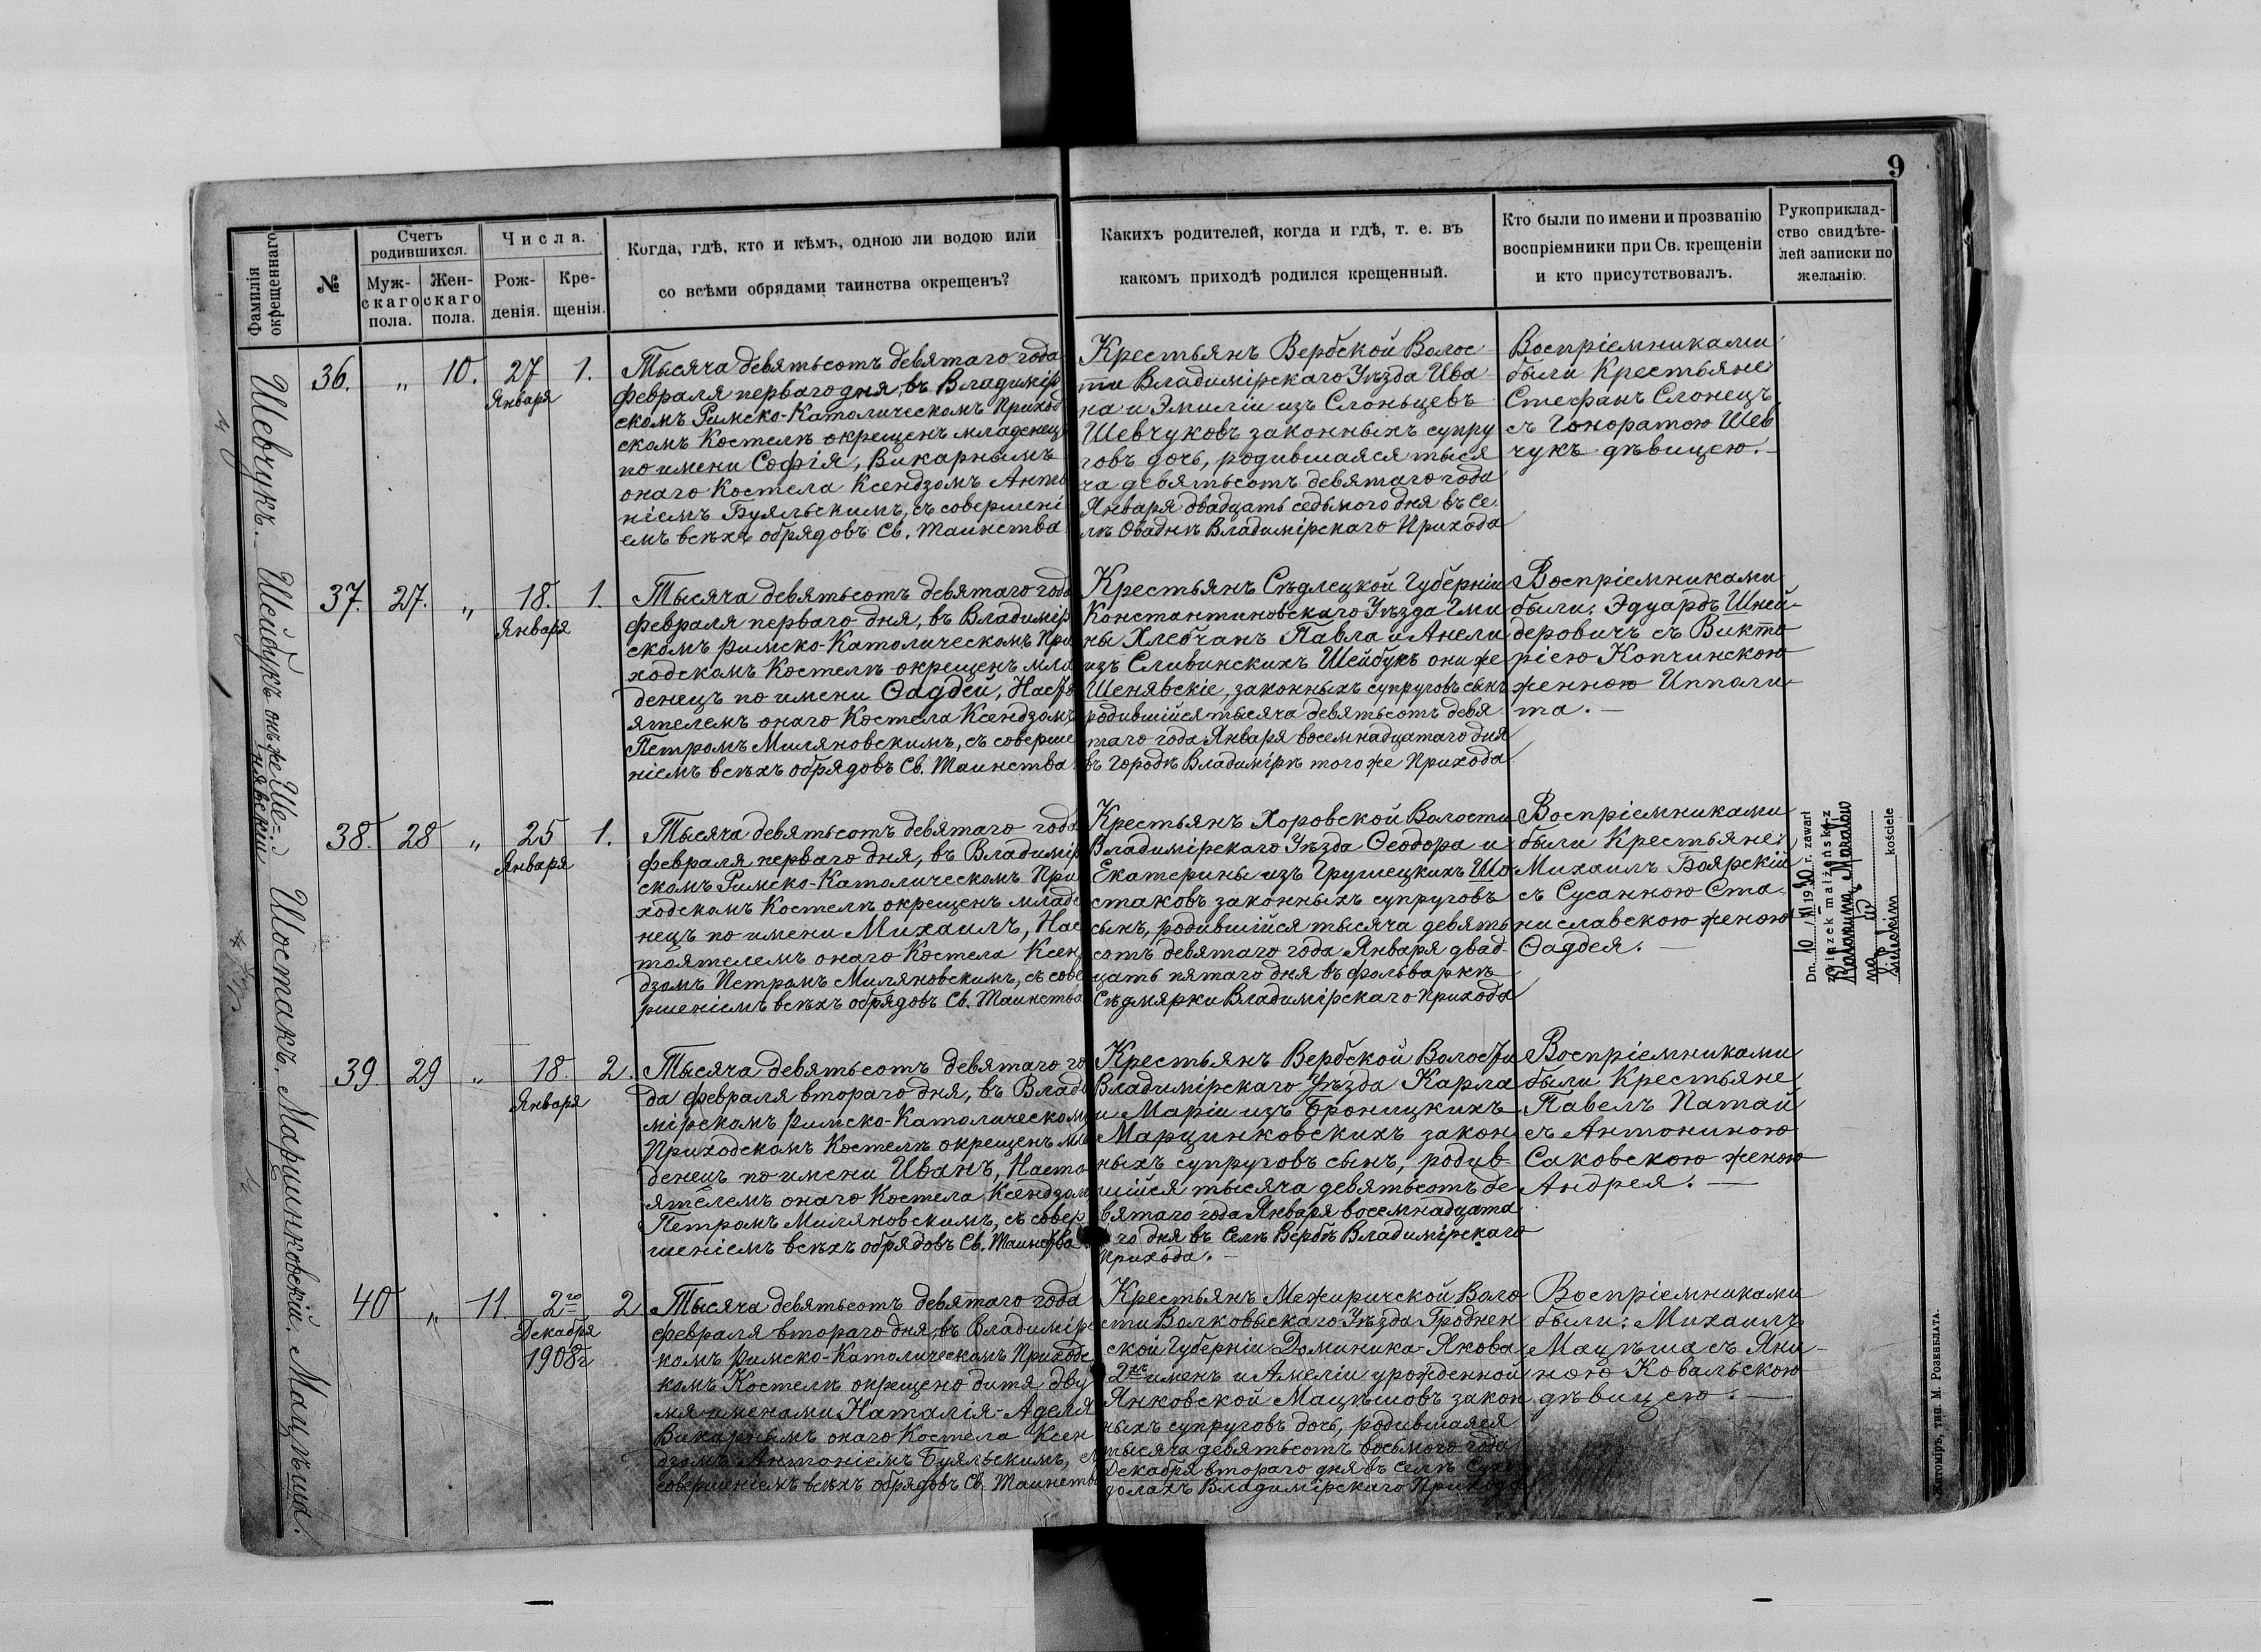 9
Фамилія окрещеннаго
№
Счетъ родившихся.
Муж-
скаго
пола.
Жен-
скаго
пола.
Числа.
Рож-
денія.
Кре-
щенія.
Когда, гдѣ, кто и кѣмъ, одною ли водою или
со всѣми обрядами таинства окрещенъ?
Какихъ родителей, когда и гдѣ, т. е. въ
какомъ приходѣ родился крещенный.
Кто были по имени и прозванію
воспріемники при Св. крещеніи
и кто присутствовалъ.
Рукоприклад-
ство свидѣте-
лей записки по
желанію.
Шевчукъ.
36. „ 10. 27 Января 1.
Тысяча девятьсотъ девятаго года
февраля перваго дня, въ Владимір
скомъ Римско-Католическомъ Приход
скомъ Костелѣ окрещенъ младенецъ
по имени Софія, Викарнымъ
онаго Костела Ксендзомъ Анто
ніемъ Буяльскимъ, съ совершені
емъ всѣхъ обрядовъ Св. Таинства
Крестьянъ Вербской Волос
ти Владимірскаго Уѣзда Ива
на и Эмиліи изъ Слоньцевъ
Шевчуковъ законныхъ супру
говъ дочь, родившаяся тыся
ча девятьсотъ девятаго года
Января двадцать седьмого дня въ се
лѣ Оваднѣ Владимірскаго Прихода
Воспріемниками
были Крестьяне
Стефанъ Слонецъ
съ Гоноратою Шев
чукъ дѣвицею.
Шейбукъ онъ же Ше=
нявскій
37. 27. „ 18. Января 1.
Тысяча девятьсотъ девятаго года
февраля перваго дня, въ Владимір
скомъ Римско-Католическомъ При
ходскомъ Костелѣ окрещенъ мла
денецъ по имени Ѳаддей, Насто
ятелемъ онаго Костела Ксендзомъ
Петромъ Миляновскимъ, съ соверше
ніемъ всѣхъ обрядовъ Св. Таинства
Крестьянъ Сѣдлецкой Губерніи
Константиновскаго Уѣзда Гми
ны Хлебчанъ Павла и Анели
изъ Сливинскихъ Шейбукъ они же
Шенявскіе, законныхъ супруговъ сынъ
родившійся тысяча девятьсотъ девя
таго года Января восемнадцатаго дня
въ городѣ Владимірѣ того же Прихода
Воспріемниками
были: Эдуардъ Шней-
деровичъ съ Викто
ріею Копчинскою
женною Иппали-
та. —
Шостакъ.
38. 28 „ 25 Января 1.
Тысяча девятьсотъ девятаго года
февраля перваго дня, въ Владимір
скомъ Римско-Католическомъ При
ходскомъ Костелѣ окрещенъ младе
нецъ по имени Михаилъ, Нас
тоятелемъ онаго Костела Ксен
дзомъ Петромъ Миляновскимъ, съ сове
ршеніемъ всѣхъ обрядовъ Св. Таинства
Крестьянъ Хоровской Волости
Владимірскаго Уѣзда Ѳеодора и
Екатерины изъ Грушецкихъ Шо
стаковъ законныхъ супруговъ
сынъ, родившійся тысяча девять
сотъ девятаго года Января двад-
цать пятаго дня въ фольваркѣ
Сѣдмярки Владимірскаго прихода
Воспріемниками
были Крестьяне:
Михаилъ Боярскій
съ Сусанною Ста-
ниславскою женою
Ѳаддея. —
Dn. 10/XI 1930 r. zawarł
związek małżeński z
na
kościele
Марцинковскій.
39 29 „ 18. Января 2.
Тысяча девятьсотъ девятаго го
да февраля второго дня, въ Влади
мірскомъ Римско-Католическомъ
Приходскомъ Костелѣ окрещенъ мла
денецъ по имени Иванъ, Насто
ятелемъ онаго Костела Ксендзомъ
Петромъ Миляновскимъ, съ совер
шеніемъ всѣхъ обрядовъ Св. Таинства
Крестьянъ Вербской Волости
Владимірскаго Уѣзда Карла
и Маріи изъ Броницкихъ
Марцинковскихъ закон
ныхъ супруговъ сынъ, родив-
шійся тысяча девятьсотъ де
вятаго года Января восемнадцата
го дня въ селѣ Вербѣ Владимірскаго
Прихода. —
Воспріемниками
были Крестьяне
Павелъ Патай
съ Антониною
Саковскою женою
Андрея. —
Мацѣша.
40 „ 11. 2го Декабря 1908г 2
Тысяча девятьсотъ девятаго года
февраля второго дня, въ Владимірс
комъ Римско-Католическомъ Приходс
комъ Костелѣ окрещено дитя дву
мя именами Наталія-Аделя
Викарнымъ онаго Костела Ксен
дзомъ Антоніемъ Буяльскимъ, съ
совершеніемъ всѣхъ обрядовъ Св. Таинства
Крестьянъ Межиричской Воло
сти Волковыскаго Уѣзда Гроднен
ской Губерніи Доминика-Якова
2хъ именъ и Амеліи урожденной
Янковской Мацѣшовъ закон
ныхъ супруговъ дочь, родившаяся
тысяча девятьсотъ восьмого года
Декабря второго дня въ селѣ Сухо
долахъ Владимірскаго Прихода
Воспріемниками
были: Михаилъ
Мацѣша съ Яни-
ною Ковальскою
дѣвицею. —
Житоміръ, тип. М. Розенблата.